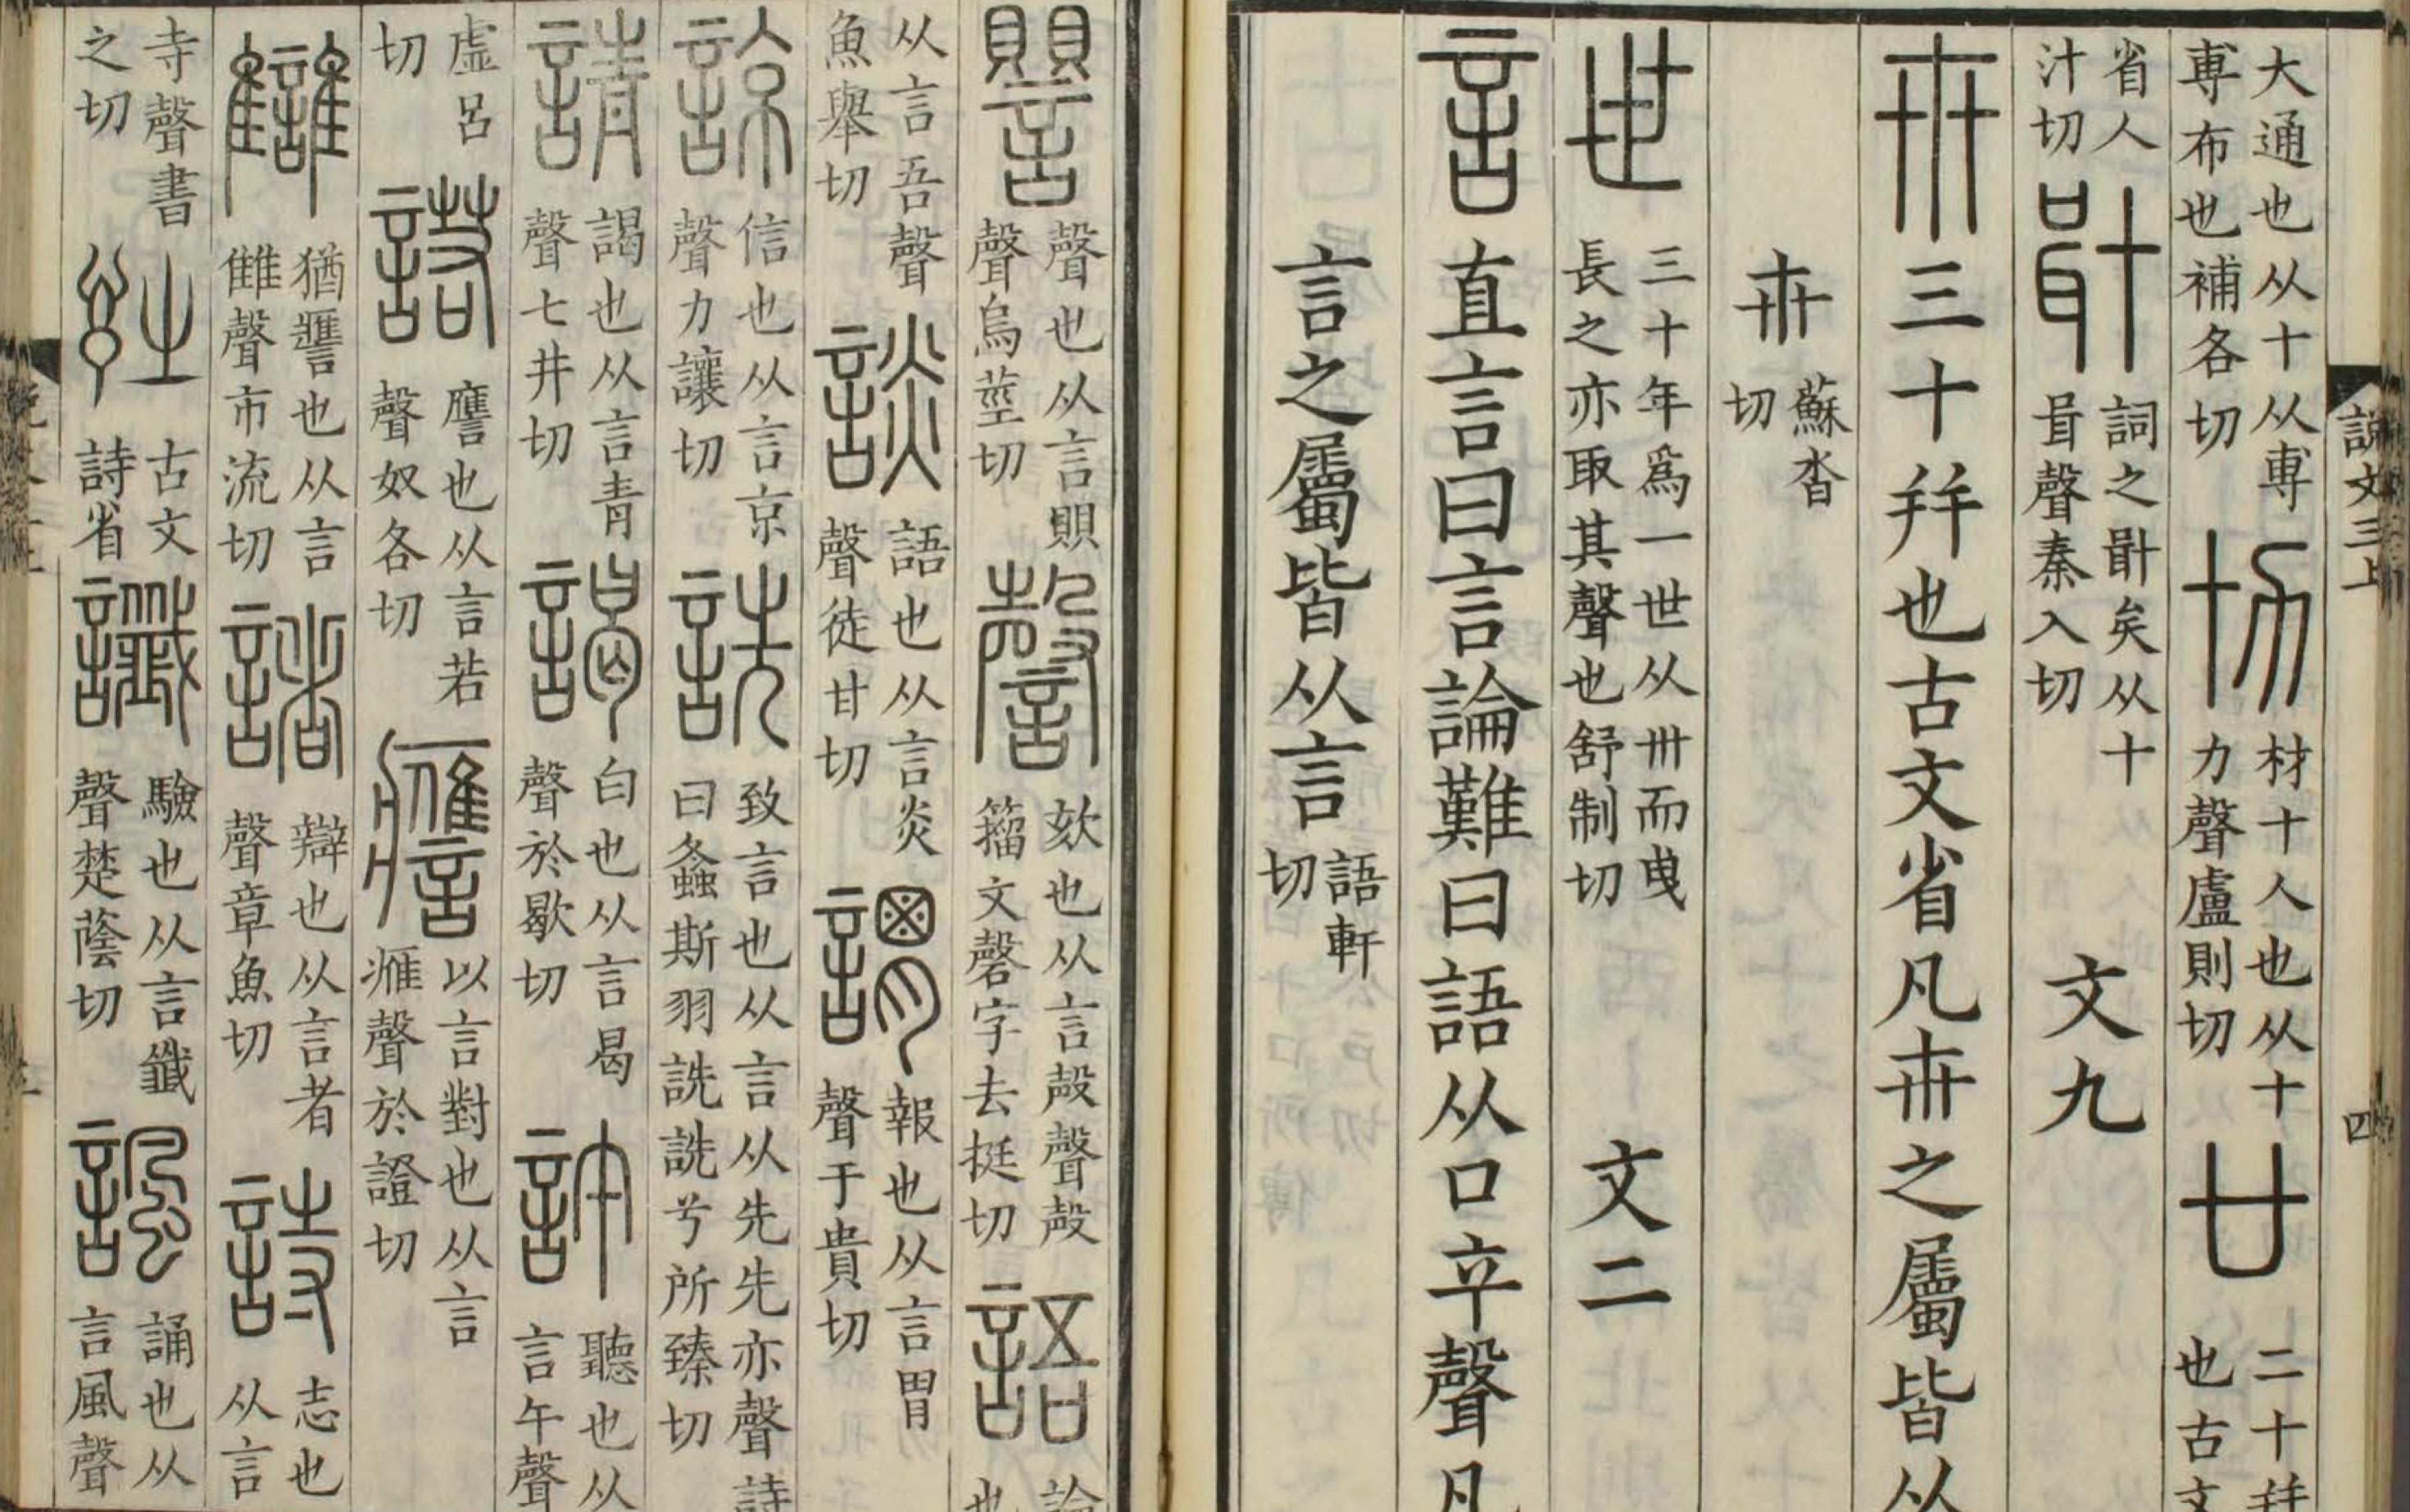 說文三上
四
大通也从十从尃
尃布也補各切
材十人也从十
力聲盧則切
廿
二十并
也古文
省人
汁切
詞之𠦫矣从十
咠聲秦入切
文九
卅
三十并也古文省凡卅之屬皆从
卅
蘇沓
切
世
三十年爲一世从卅而曳
長之亦取其聲也舒制切
文二
言
直言曰言論難曰語从口䇂聲凡
言之屬皆从言
語軒
切
譻
聲也从言賏
聲烏莖切
謦
欬也从言殸聲殸
籒文磬字去挺切
語
論
也
从言吾聲
魚舉切
談
語也从言炎
聲徒甘切
謂
報也从言胃
聲于貴切
諒
信也从言京
聲力讓切
詵
致言也从言从先先亦聲詩
曰螽斯羽詵詵兮所臻切
請
謁也从言青
聲七井切
謁
白也从言曷
聲於歇切
許
聽也从
言午聲
虛呂
切
諾
譍也从言若
聲奴各切
譍
以言對也从言
雁聲於證切
讎
猶譍也从言
雔聲市流切
諸
辯也从言者
聲章魚切
詩
志也
从言
寺聲書
之切
古文
詩省
讖
驗也从言韱
聲楚蔭切
諷
誦也从
言風聲